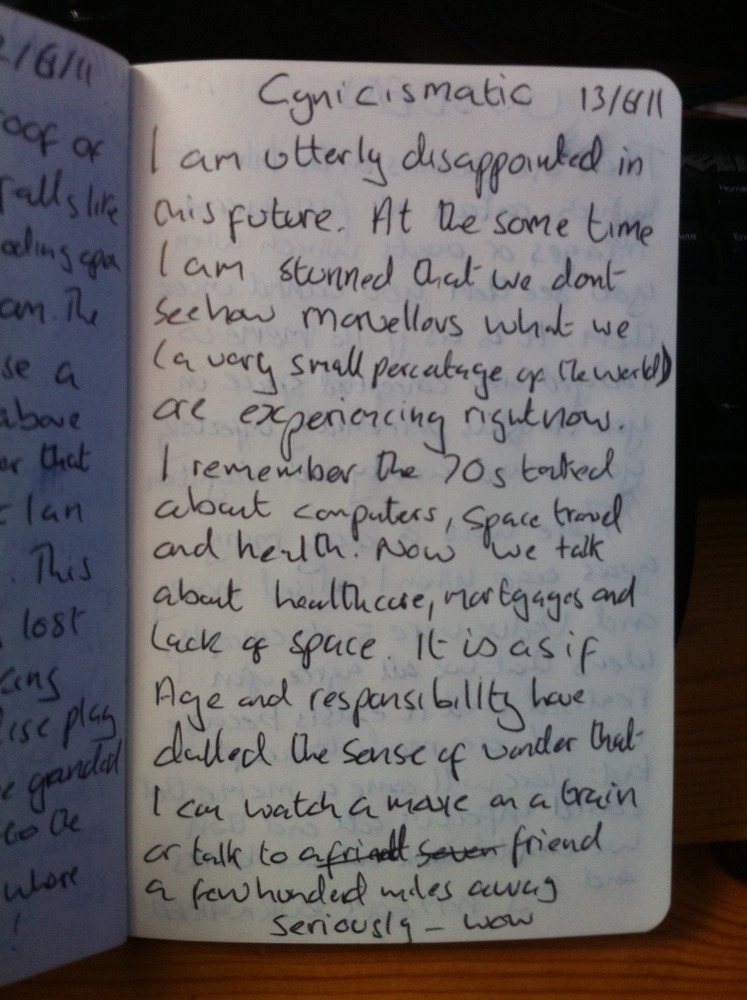 2/6/11
oof of
Falls like
ading upon
am. The
se a
above
er that
Ian
. This
lost
ise play
e granded
to the
where
!
Cynicismatic 13/6/11
I am utterly disappointed in
this future. At the same time
I am stunned that we dont
see how marvellous what we
(a vary small percatage of the world)
are experiencing right now.
I remember the 70s talked
about computers, space travel
and health. Now we talk
about healthcare, mortgages and
lack of space. It is as if
Age and responsibility have
dulled the sense of wonder that
I can watch a movie on a train
or talk to a friend seven friend
a few hunded miles away
Seriously - wow